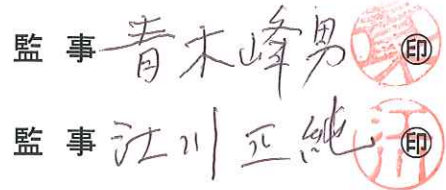 監 事 青木峰男 ㊞
監 事 江川正純 ㊞